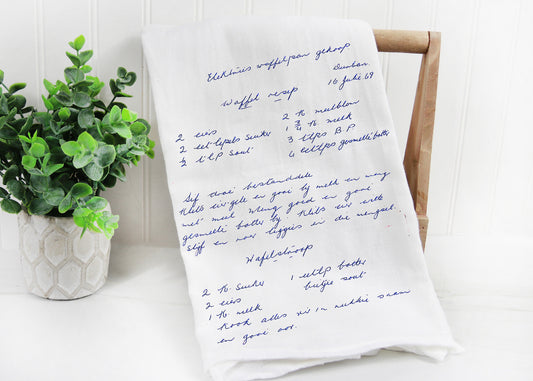 Elektriese waffelpan gekoop
Durban
16 Julie 69
Waffel resep
2 eiers
2 eetlepels suiker
½ t'lp sout
2 k. meelblom
1 ¾ k. melk
3 tlps B.P
4 eetlps gesmelte botter
Sif droë bestanddele
Klits eiergele en gooi by melk en meng
met meel. Meng goed en gooi
gesmelte botter by. Klits eier witte
styf en vou liggies in die mengsel.
Wafelstroop
2 k. suiker
2 eiers
1 k. melk
1 eetlp botter
bietjie sout
Kook alles vir 10 minute saam
en gooi oor.